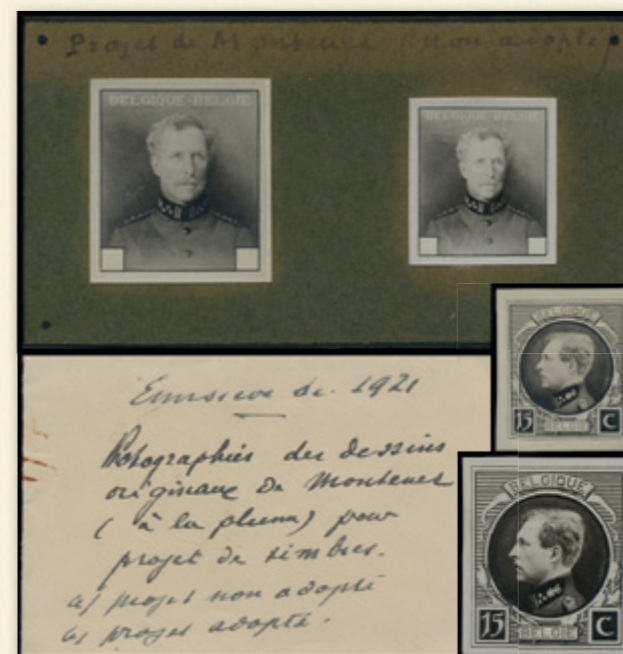 Projet de Montenez (non adopté)
BELGIQUE-BELGIE
BELGIQUE-BELGIE
BELGIQUE
15 C
BELGIE
Emission de 1921
Photographies des dessins
originaux de Montenez
(à la plume) pour
projet de timbres.
a/ projet non adopté
b/ projet adopté.
BELGIQUE
15 C
BELGIE